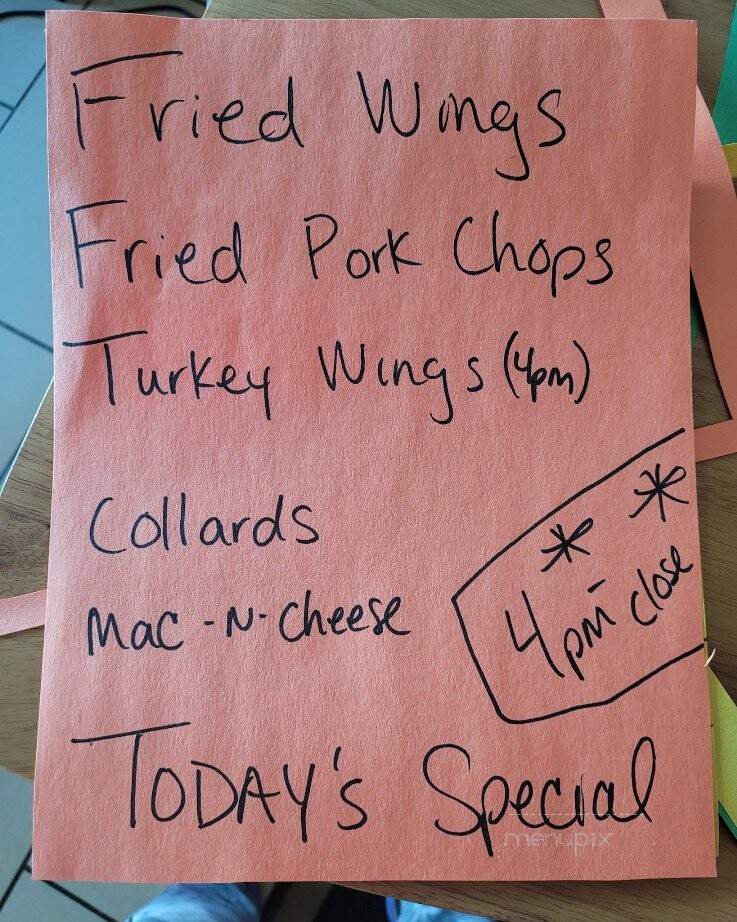 Fried Wings
Fried Pork Chops
Turkey Wings (4pm)
Collards
Mac-N-Cheese
* *
4pm-close
TODAY's Special
menupix